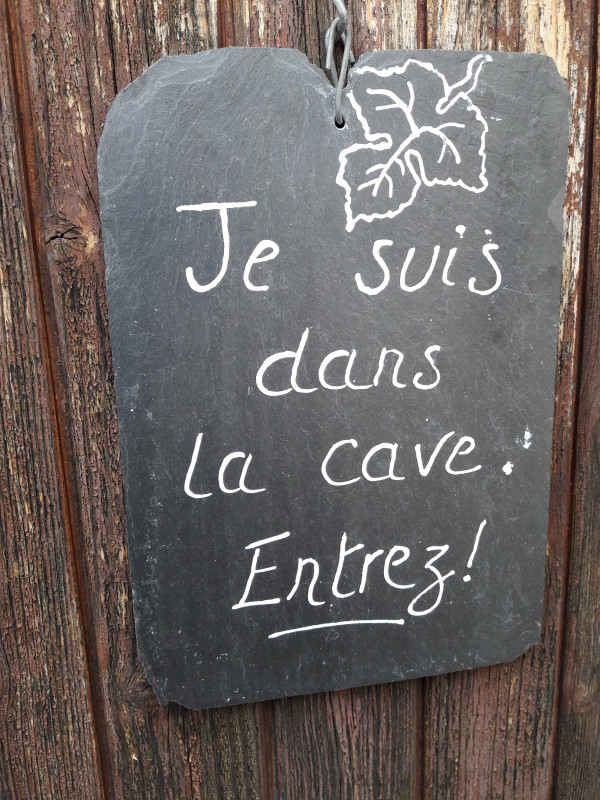 Je suis
dans
la cave.
Entrez!